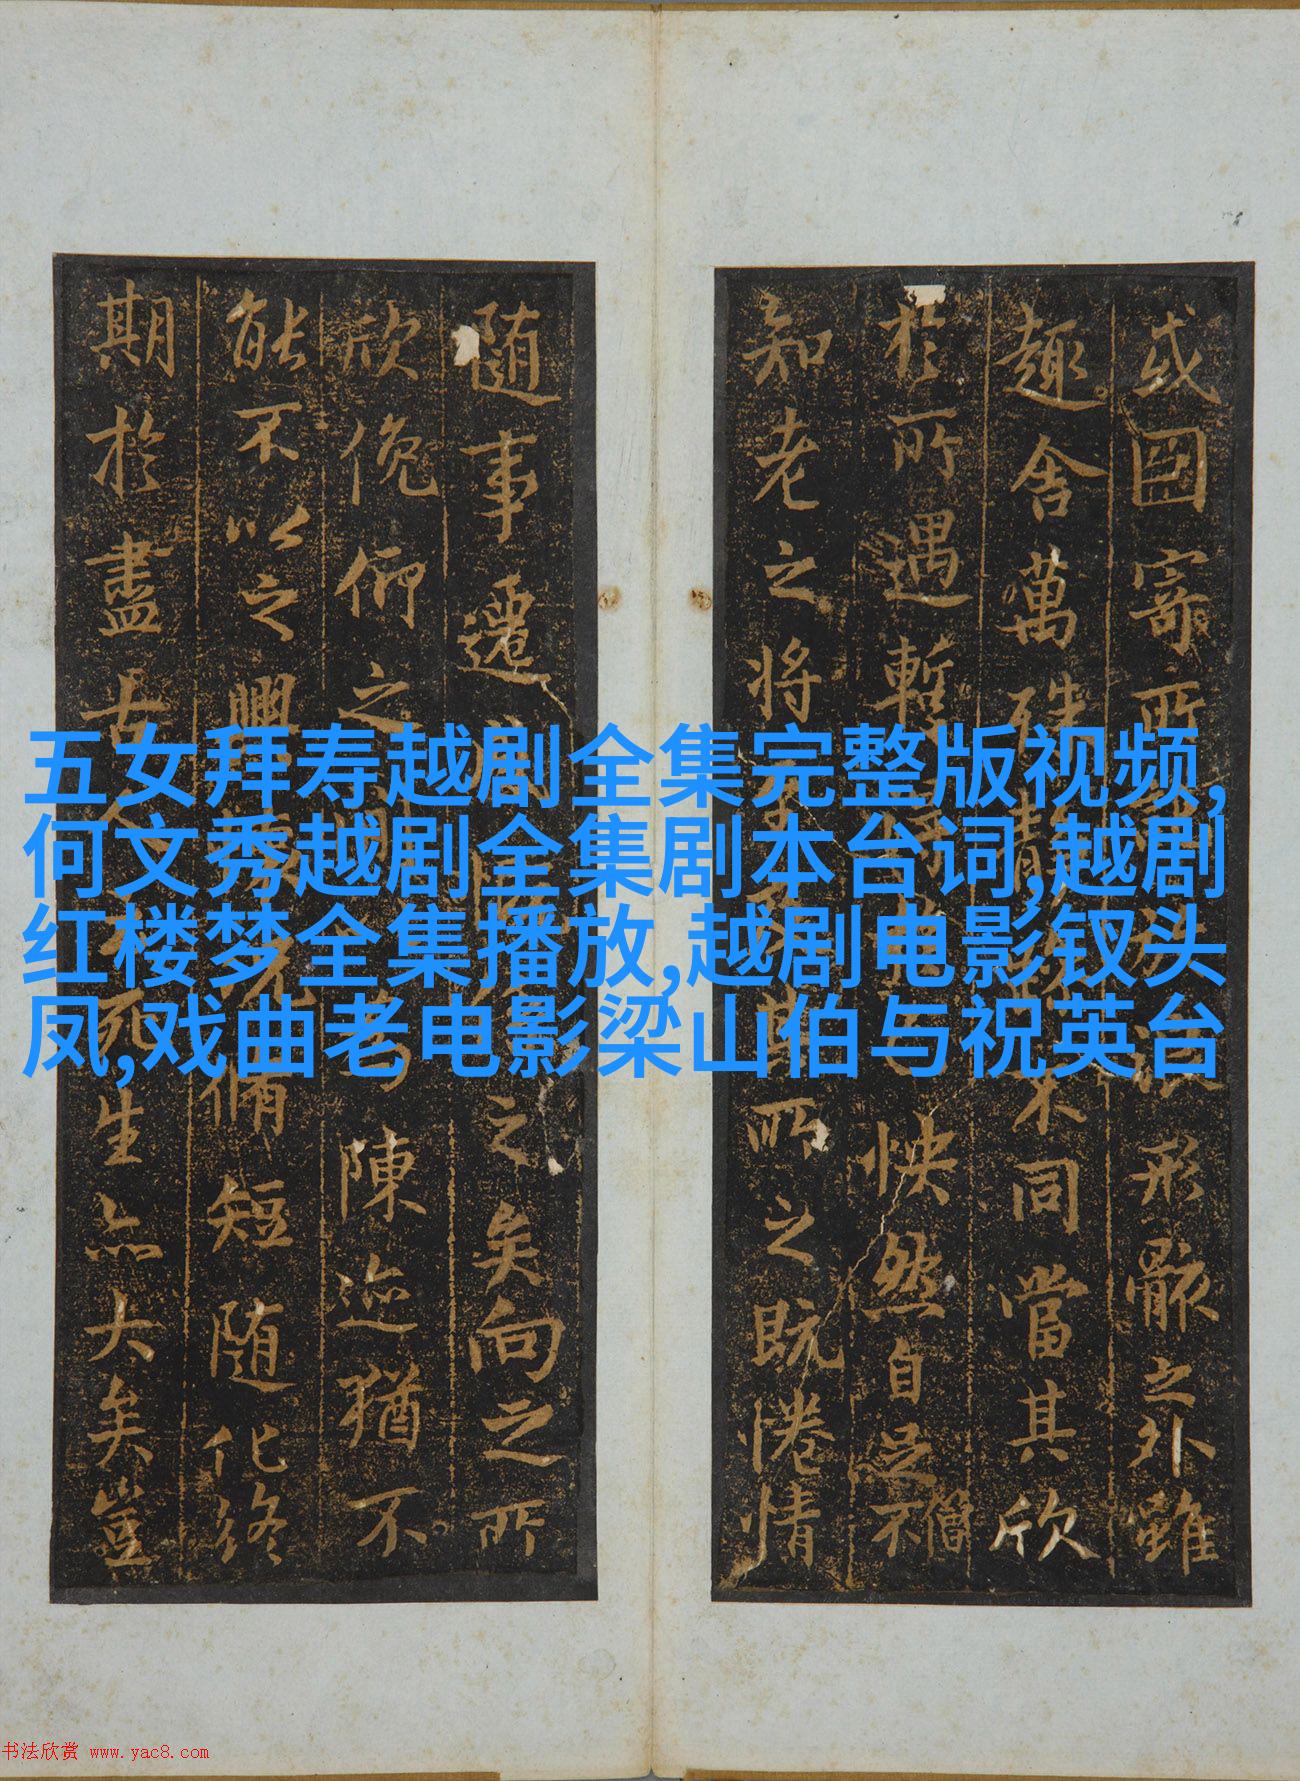 五女拜寿越剧全集完整版视频,
何文秀越剧全集剧本台词,越剧
红楼梦全集播放,越剧电影钗头
凤,戏曲老电影梁山伯与祝英台
或因寄所形骸之外雖
趣舍萬殊不同當其欣
於所遇暫怏然自足不
僧
知老之將所之既惓情
隨事遷之矣向之所
欣俛仰之陳迹猶不
能不以之興脩短隨化終
期於盡古死生亦大矣豈
书法欣赏 www.yac8.com